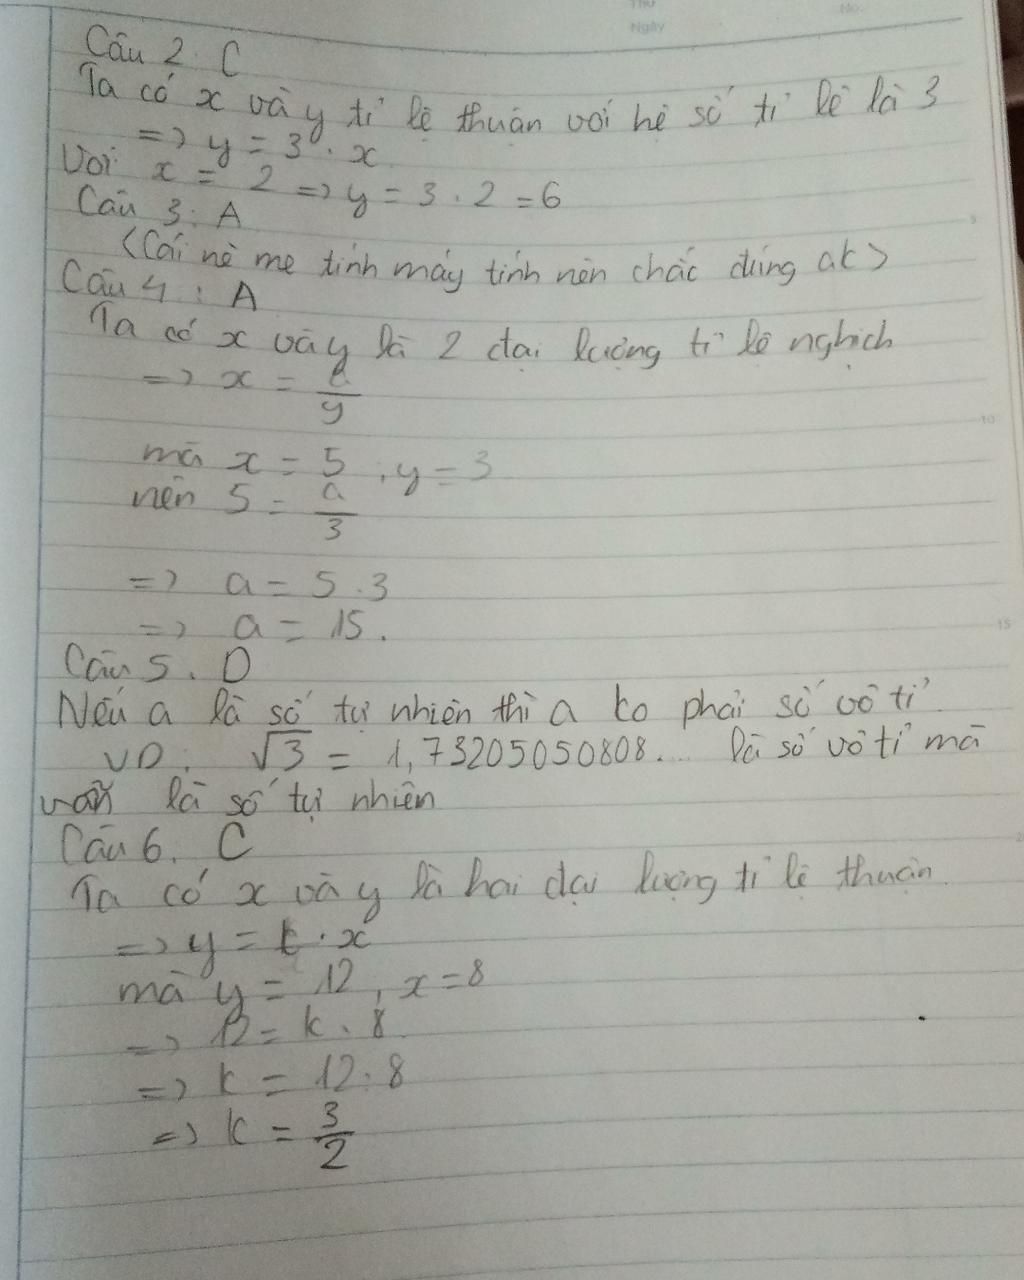 Thứ
Ngày
No.
Câu 2. C
Ta có x và y tỉ lệ thuận với hệ số tỉ lệ là 3
=> y = 3 . x
Với x = 2 => y = 3 . 2 = 6
Câu 3 : A
<Cái nè mẹ tính máy tính nên chắc đúng ak>
Câu 4 : A
Ta có x và y là 2 đại lượng tỉ lệ nghịch
=> x = a/y
mà x = 5 , y = 3
nên 5 = a/3
=> a = 5 . 3
=> a = 15.
Câu 5. D
Nếu a là số tự nhiên thì a ko phải số vô tỉ.
VD: √3 = 1,73205050808... là số vô tỉ mà
vẫn là số tự nhiên
Câu 6. C
Ta có x và y là hai đại lượng tỉ lệ thuận
=> y = k . x
mà y = 12 , x = 8
=> 12 = k . 8
=> k = 12 : 8
=> k = 3/2
5
10
15